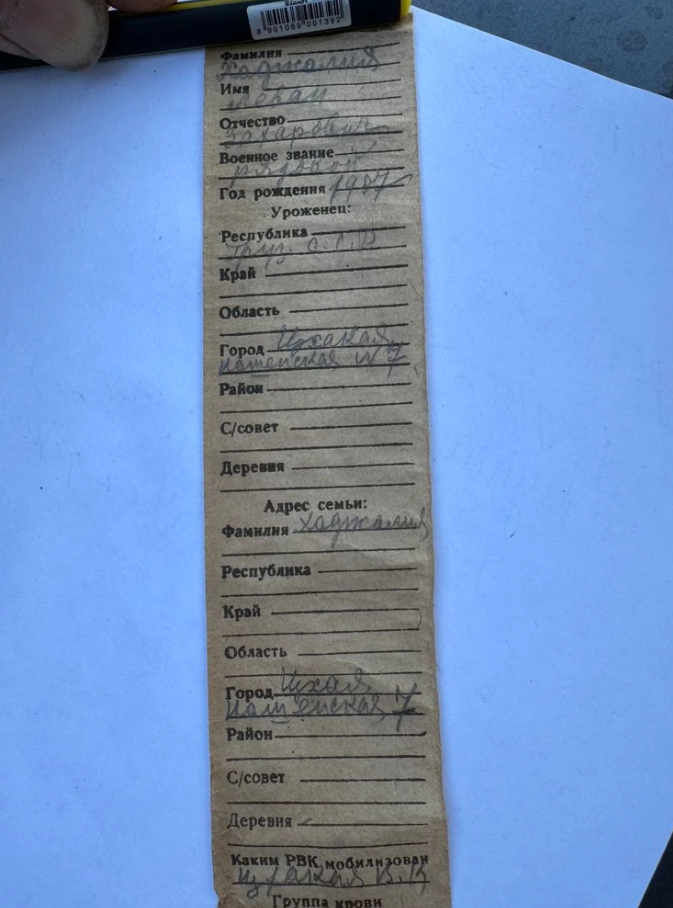 8 901069 001392
Фамилия
Хаджалия
Имя
Отчество
Захарович
Военное звание
рядовой
Год рождения
Уроженец:
Республика
Груз. С.С.Р
Край
Область
Город Цхакая
№ 7
Район
С/совет
Деревня
Адрес семьи:
Фамилия Хаджалия
Республика
Край
Область
Город
7
Район
С/совет
Деревня
Каким РВК мобилизован
Цхакая
Группа крови